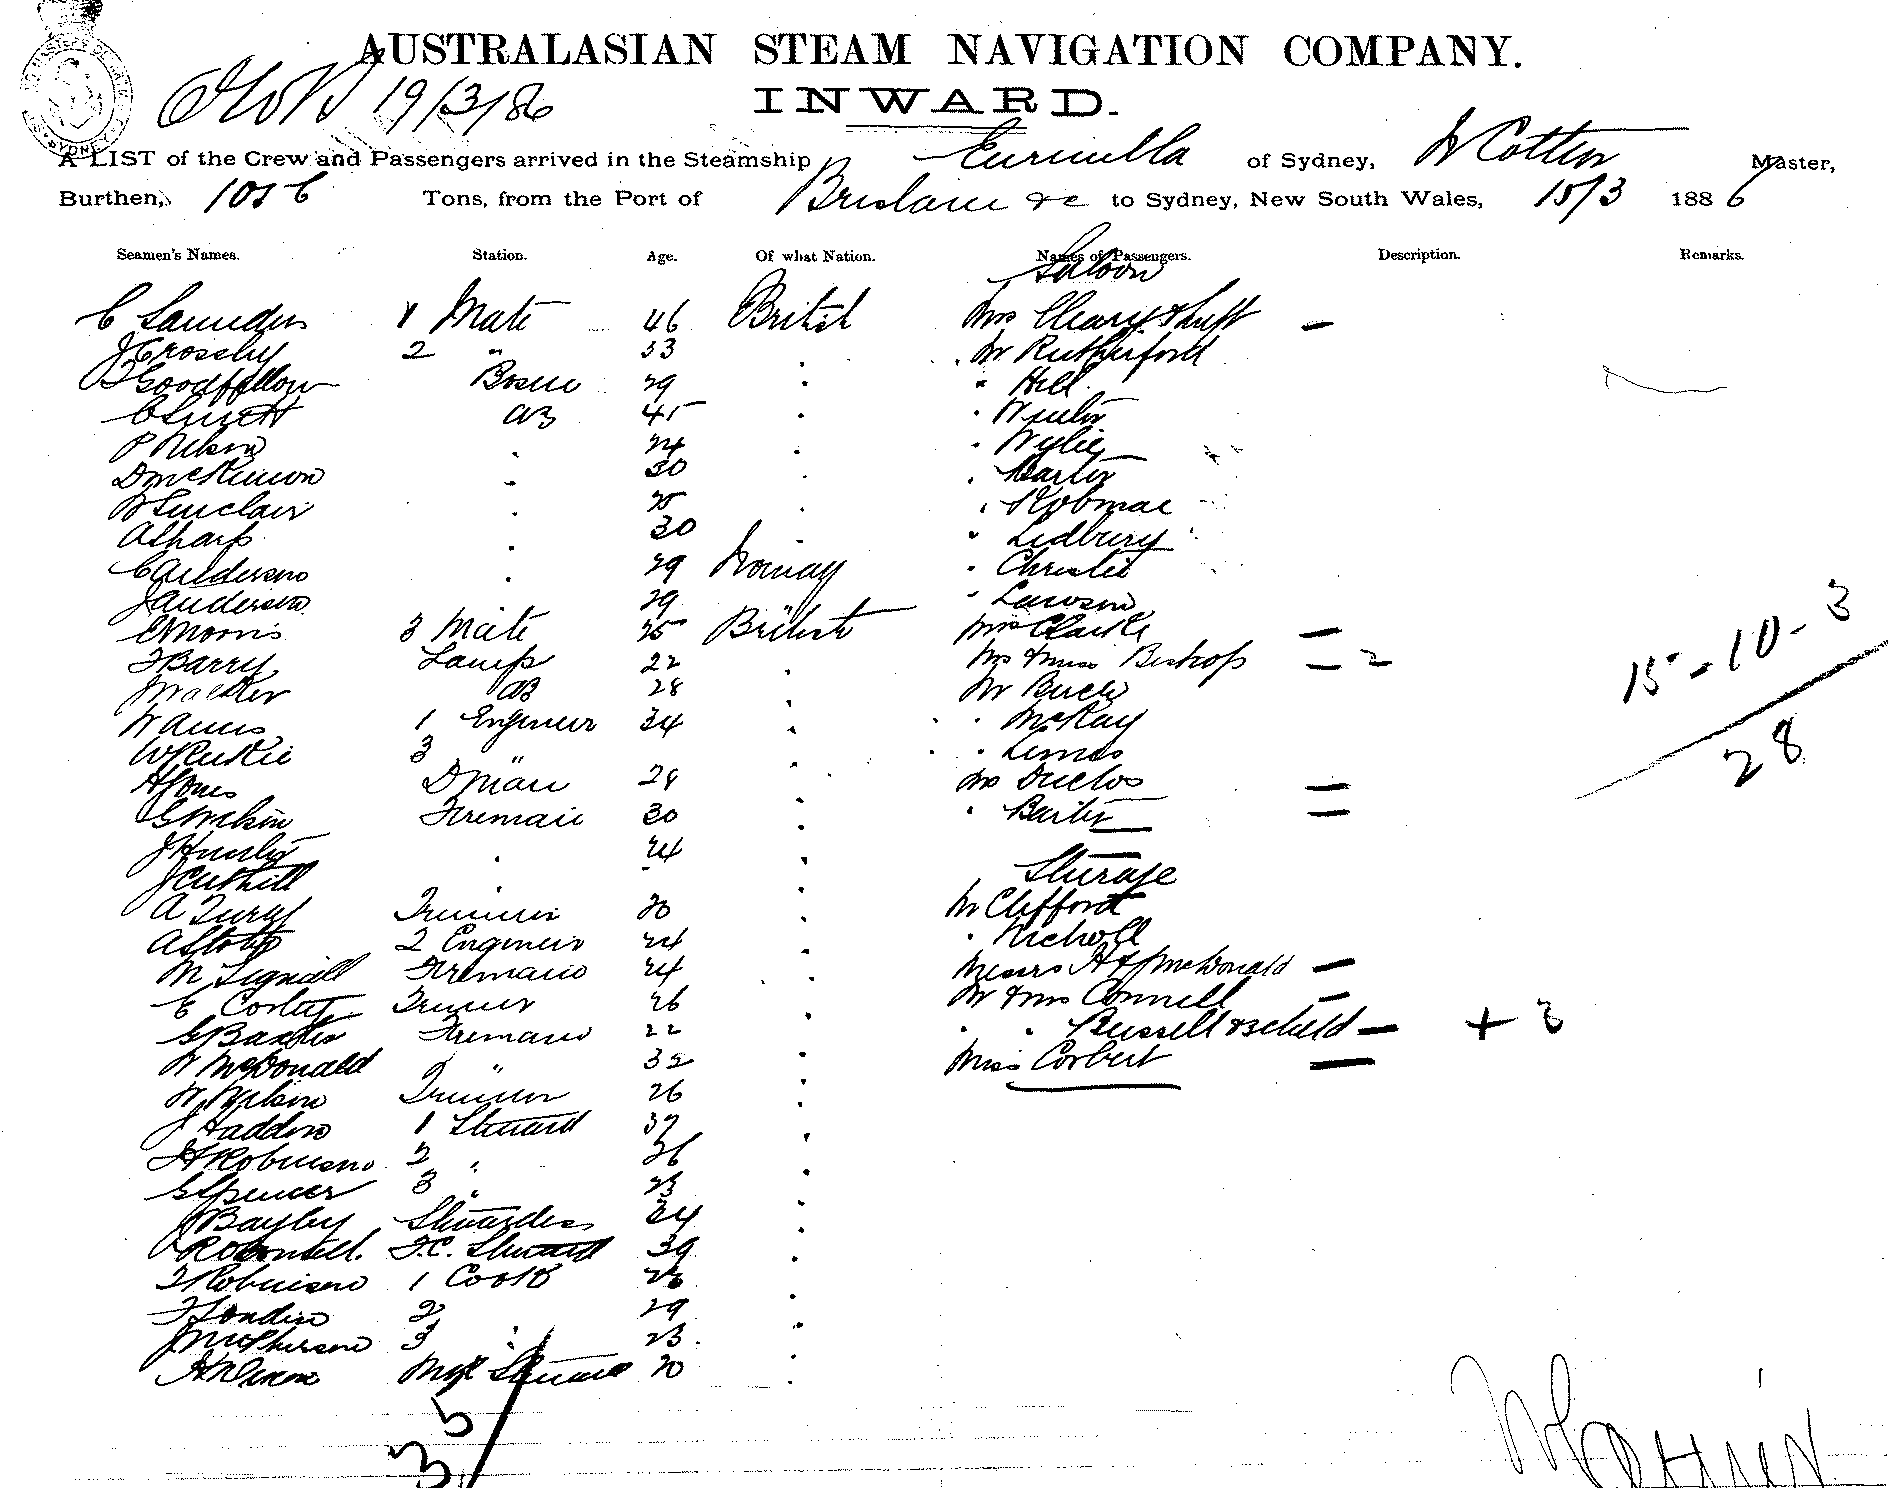 AUSTRALASIAN STEAM NAVIGATION COMPANY.
19/3/86
INWARD.
A LIST of the Crew and Passengers arrived in the Steamship Eurimbla of Sydney, W Cotter Master,
Burthen, 1056 Tons, from the Port of Brisbane &c to Sydney, New South Wales, 15/3 1886
Seamen's Names. Station. Age. Of what Nation. Names of Passengers. Description. Remarks.
Saloon
C Saunders 1 Mate 46 British Mrs Cleary &
J Crossby 2 " 33 Mr Rutherford
B Goodfellow Bosun 29 " Hill
AB 45 Winter
P Nelson 24 Wylie
D McKinnon 30 Martin
W Sinclair 25
A Sharp 30 Ledbury
C Anderson 29 Norway Christie
J Anderson 29 Lawson
C Morris 3 Mate 25 British Mrs Clarke
T Barry Lamps 22 Mrs & Miss Bishop 2
J Walker AB 28 Mr
W 1 Engineer 34 McKay
3 "
H Jones 28 Mrs Duclos
G Fireman 30
J Hunter 24
J Cuthill Steerage
A Trimmer 20 Mr Clifford
A 2 Engineer 24 Nicholl
M Fireman 24 Messrs H & J McDonald
E Corley Trimmer 26 Mr & Mrs Connell
G Baxter Fireman 22 " " Russell & Child + 3
W McDonald " 32 Miss Corbert
W Nelson Trimmer 26
J Haddon 1 Steward 37
H Robinson 2 " 26
G Spencer 3 " 23
J Bayley Stewardess 34
R OConnell F.C. Steward 39
T Robinson 1 Cook
T London 2 29
J McPherson 3 " 23
H Dixon Steward 20
35
15 - 10 - 3
28